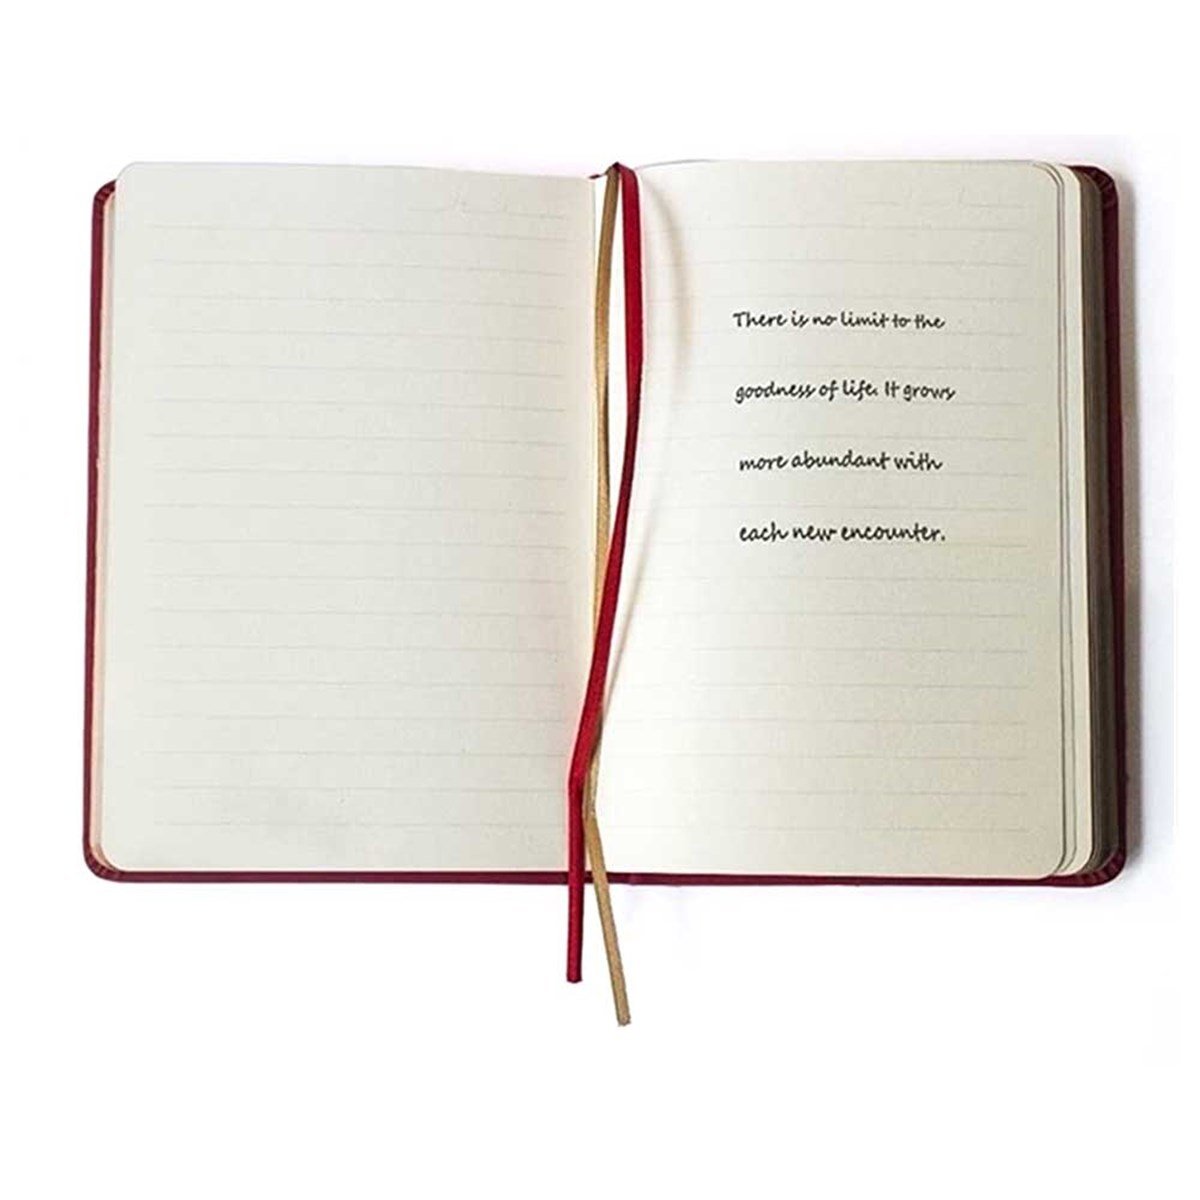 There is no limit to the
goodness of life. It grows
more abundant with
each new encounter.